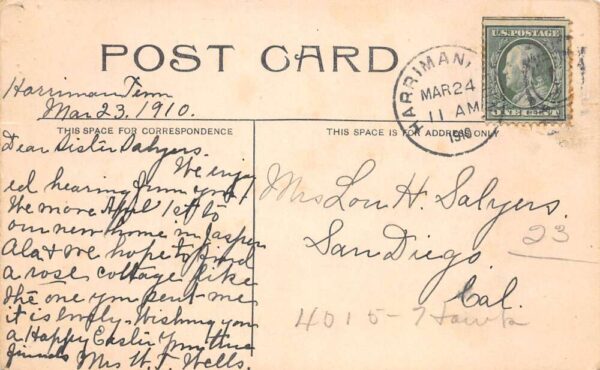 POST CARD
Harriman Tenn
Mar 23, 1910.
THIS SPACE FOR CORRESPONDENCE
THIS SPACE IS FOR ADDRESS ONLY
Dear Sister Salyers.
We enjoy
ed hearing from you!
We move Apl 1st to
our new home in Jasper
Ala & we hope to find
a rose cottage like
the one you sent me
it is lovely. Wishing you
a Happy Easter Your true
friends Mrs W. T. Wells.
HARRIMAN,
MAR 24
11 AM
1910
U.S. POSTAGE
ONE CENT
Mrs Lou H. Salyers.
San Diego
Cal.
23
4015 -